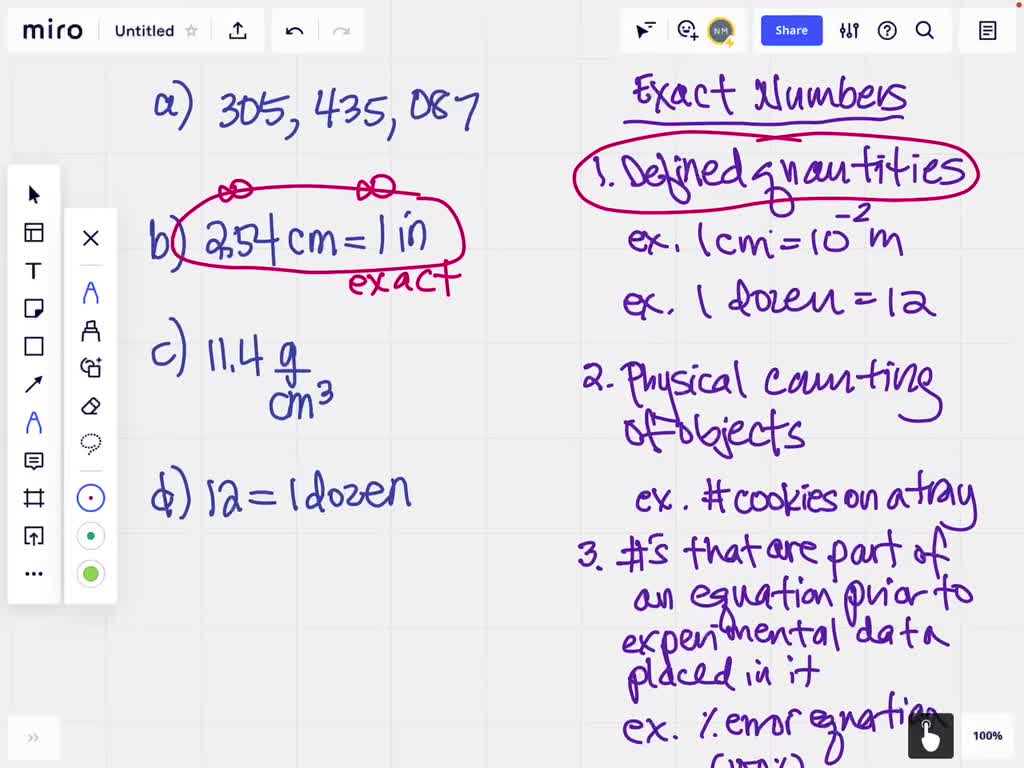 miro
Untitled
NM
Share
a) 305, 435, 087
b) 2.54 cm = 1 in
exact
c) 11.4 g
cm³
d) 12 = 1 dozen
Exact Numbers
1. Defined quantities
ex. 1 cm = 10⁻² m
ex. 1 dozen = 12
2. Physical counting
of objects
ex. # cookies on a tray
3. #'s that are part of
an equation prior to
experimental data
placed in it
ex. % error equation
100%